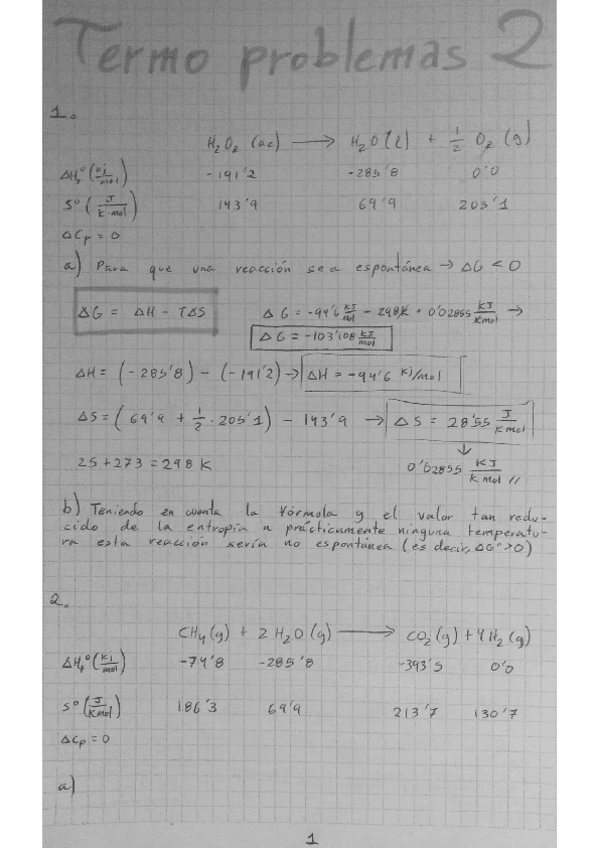 Termo problemas 2
1.
H₂O₂ (ac) ⟶ H₂O(l) + 1/2 O₂ (g)
ΔHf° (KJ/mol) -191'2 -285'8 0'0
S° (J/K·mol) 143'9 69'9 205'1
ΔCp = 0
a) Para que una reacción sea espontánea → ΔG < 0
ΔG = ΔH - TΔS ΔG = -94'6 KJ/mol - 298K · 0'02855 KJ/Kmol →
ΔG = -103'108 KJ/mol
ΔH = (-285'8) - (-191'2) → ΔH = -94'6 KJ/mol
ΔS = (69'9 + 1/2 · 205'1) - 143'9 → ΔS = 28'55 J/Kmol
↓
25 + 273 = 298 K 0'02855 KJ/Kmol //
b) Teniendo en cuenta la fórmula y el valor tan redu-
cido de la entropía a prácticamente ninguna temperatu-
ra esta reacción sería no espontánea (es decir, ΔG°>0)
2.
CH₄(g) + 2 H₂O(g) ⟶ CO₂(g) + 4H₂(g)
ΔHf° (KJ/mol) -74'8 -285'8 -393'5 0'0
S° (J/Kmol) 186'3 69'9 213'7 130'7
ΔCp = 0
a)
1